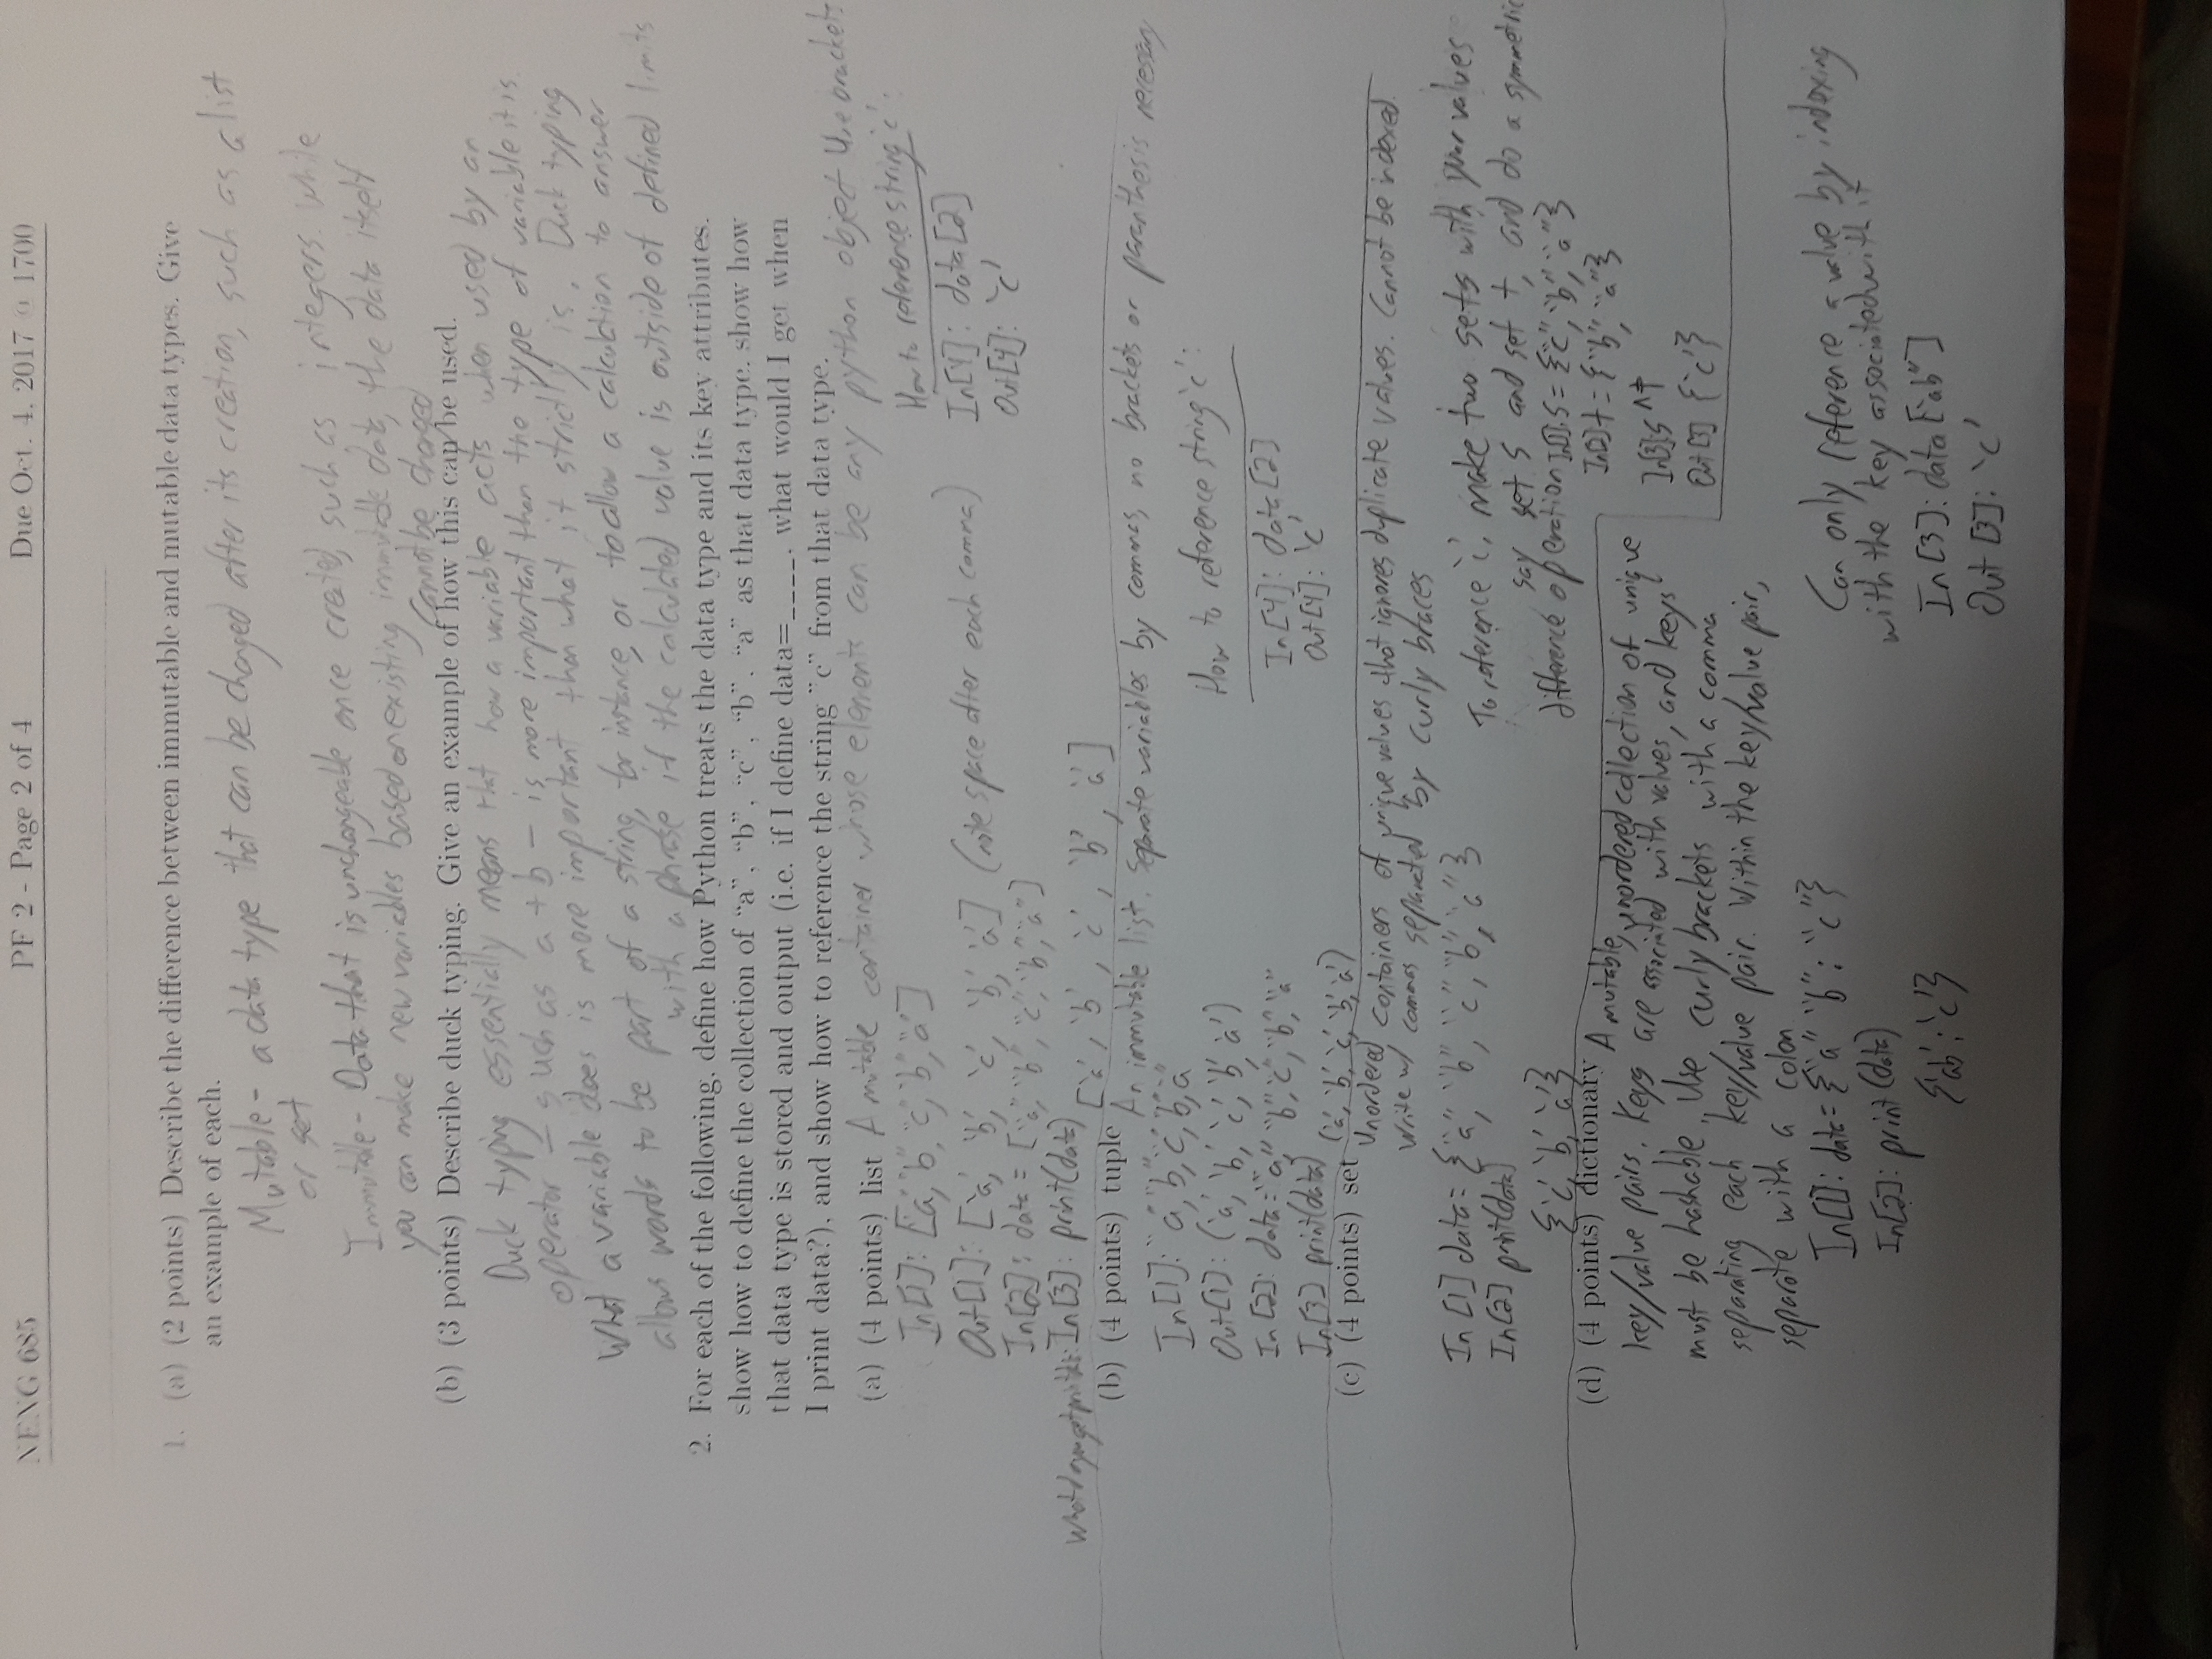 NENG 685 PF 2 - Page 2 of 4 Due Oct. 4, 2017 @ 1700
1. (a) (2 points) Describe the difference between immutable and mutable data types. Give
an example of each.
Mutable - a data type that can be changed after its creation, such as a list
or set
Immutable - Data that is unchangeable once created, such as integers. While
you can make new variables based on existing immutable data, the data itself
cannot be changed
(b) (3 points) Describe duck typing. Give an example of how this can be used.
Duck typing essentially means that how a variable acts when used by an
operator - such as a + b - is more important than the type of variable it is.
What a variable does is more important than what it strictly is. Duck typing
allows words to be part of a string, for instance, or to allow a calculation to answer
with a phrase if the calculated value is outside of defined limits
2. For each of the following, define how Python treats the data type and its key attributes,
show how to define the collection of “a”, “b”, “c”, “b”, “a” as that data type, show how
that data type is stored and output (i.e. if I define data=____, what would I get when
I print data?), and show how to reference the string "c" from that data type.
(a) (4 points) list A mutable container whose elements can be any python object Use brackets
In[1]: ["a","b","c","b","a"]
Out[1]: ['a', 'b', 'c', 'b', 'a'] (note space after each comma)
In[2]: data = ["a","b","c","b","a"]
In[3]: print(data)
['a', 'b', 'c', 'b', 'a']
How to reference string 'c':
In[4]: data[2]
Out[4]: 'c'
(b) (4 points) tuple
An immutable list. Separate variables by commas, no brackets or paranthesis necessary
In[1]: "a","b","c","b","a"
Out[1]: ('a', 'b', 'c', 'b', 'a')
In[2]: data = "a","b","c","b","a"
In[3] print(data)
('a', 'b', 'c', 'b', 'a')
How to reference string 'c':
In[4]: data[2]
Out[4]: 'c'
(c) (4 points) set
Unordered containers of unique values that ignores duplicate values. Cannot be indexed.
Write w/ commas separated by curly braces
In[1] data = {"a", "b", "c", "b", "a"}
In[2] print(data)
{'c', 'b', 'a'}
To reference 'c', make two sets with your values
say set s and set t, and do a symmetric
difference operation In[1]: s = {"c", "b", "a"}
In[2] t = {"b", "a"}
In[3]: s ^ t
Out[3] {'c'}
(d) (4 points) dictionary A mutable, unordered collection of unique
key/value pairs. Keys are associated with values, and keys
must be hashable. Use curly brackets with a comma
separating each key/value pair. Within the key/value pair,
separate with a colon
In[1]: data = {"a" "b": "c"}
In[2]: print(data)
{'ab': 'c'}
Can only reference a value by indexing
with the key associated with it
In[3]: data["ab"]
Out[3]: 'c'